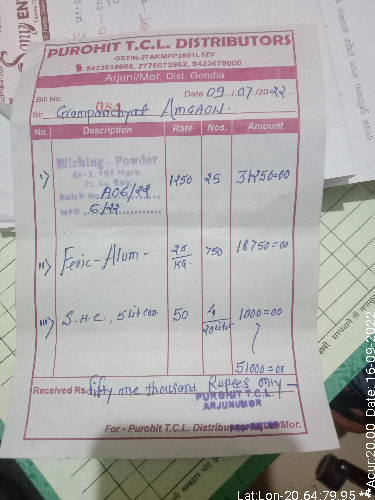 PUROHIT T.C.L. DISTRIBUTORS
GSTIN-27AKMPP2801L1ZV
9423618666, 7776072962, 9423679000
Arjuni/Mor. Dist. Gondia
Bill No. 084 Date 09/07/2022
Sir Grampanchyat AMGAON.
No. Description Rate Nos. Amount
Bliching - Powder
Gr-1, ISI Mark
i) 25 Kg Bag 1250 25 31250=00
Batch No. A06/22
MFD 6/22
ii) Feric-Alum - 25/KG. 750 18750=00
iii) S.H.C., 5 Lit can 50 4/20 1000=00
51000=00
Received Rs. fifty one thousand Rupees only -
PUROHIT T.C.L.
ARJUNI/MOR
For - Purohit T.C.L. Distributors, Arjuni/Mor.
Lat:Lon-20.64:79.95
Acur:20.00 Date: 16-09-2022